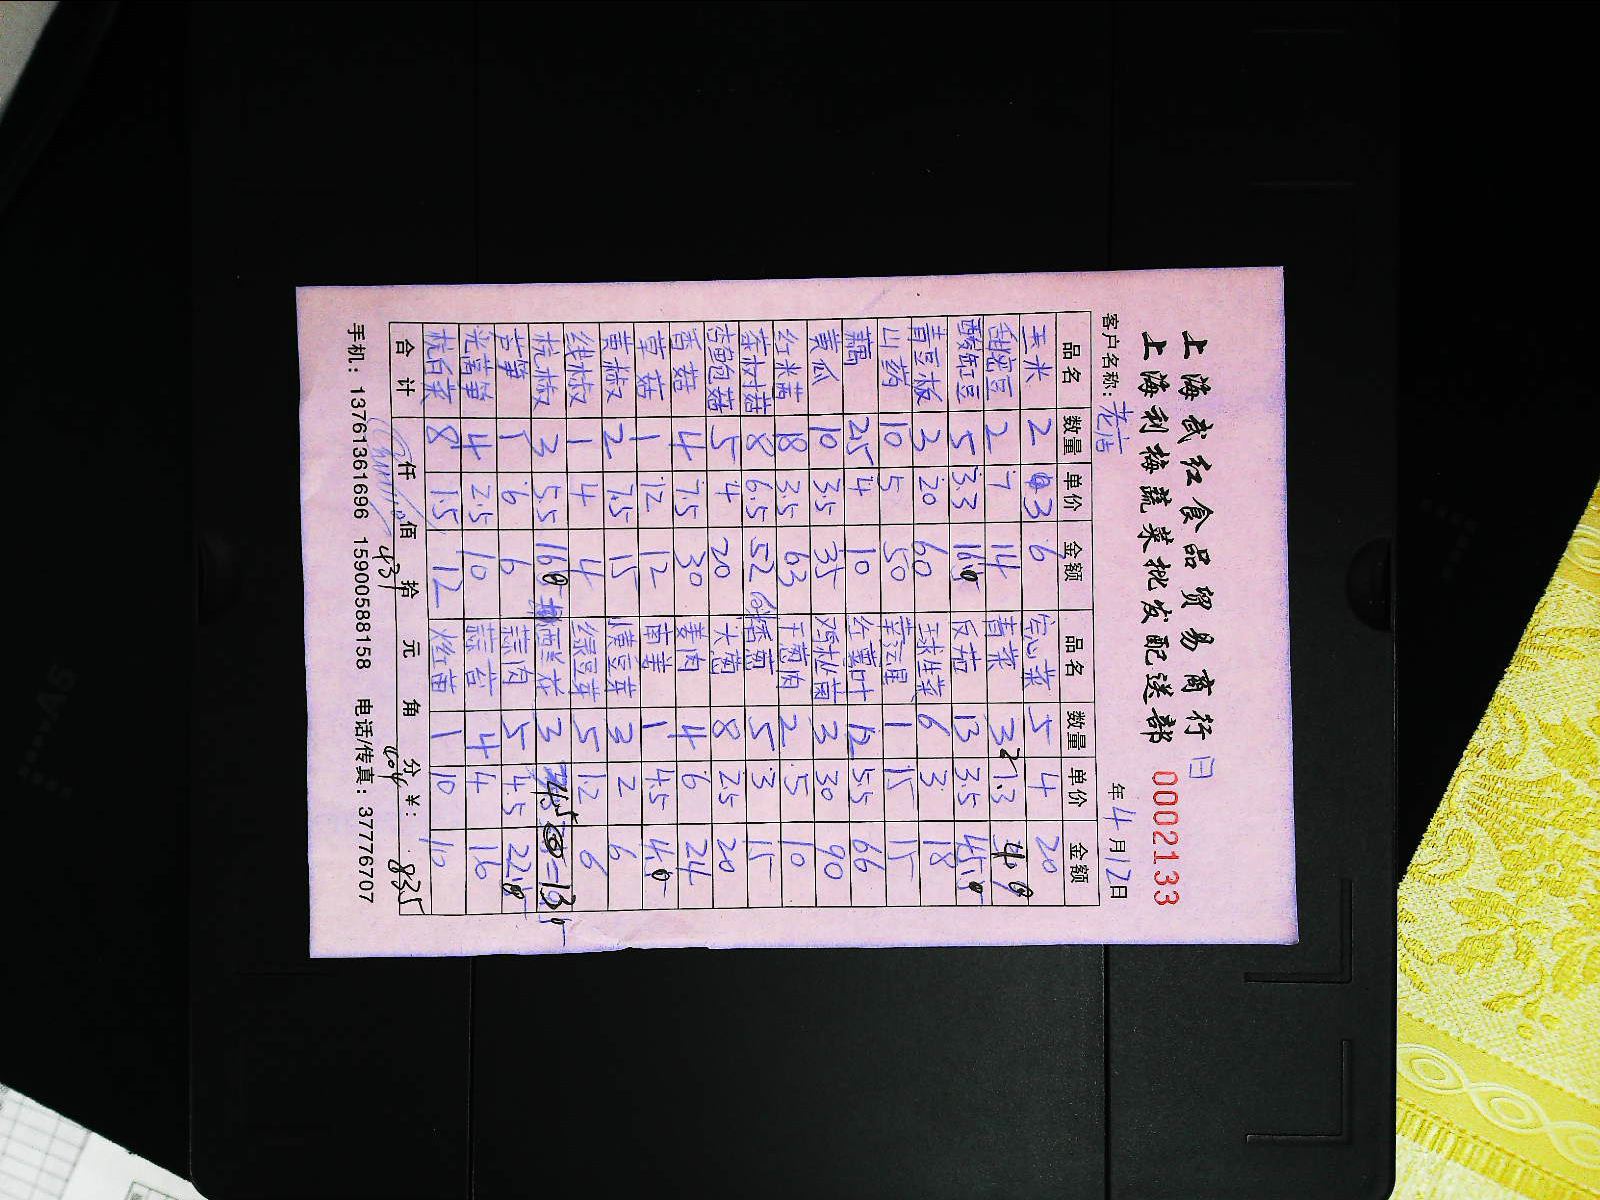 上海武红食品贸易商行
上海利梅蔬菜批发配送部 0002133
客户名称：老店 年4月12日
品名 数量 单价 金额 品名 数量 单价 金额
玉米 2 3 6 空心菜 5 4 20
甜蜜豆 2 7 14 青菜 3 1.3 4
酸豇豆 5 3.3 16 13 3.5 45
青豆板 3 20 60 球生菜 6 3 18
山药 10 5 50 1 15 15
藕 2.5 4 10 红薯叶 12 5.5 66
黄瓜 10 3.5 35 鸡枞菌 3 30 90
红米苋 18 3.5 63 干葱肉 2 5 10
茶树菇 8 6.5 52 葱 5 3 15
杏鲍菇 5 4 20 大葱 8 2.5 20
香菇 4 7.5 30 姜肉 4 6 24
草菇 1 12 12 南姜 1 4.5 4
黄椒 2 7.5 15 黄豆芽 3 2 6
线椒 1 4 4 绿豆芽 5 1.2 6
杭椒 3 5.5 16 西兰花 3 4.5 =13
1 6 6 蒜肉 5 4.5 22
光莴笋 4 2.5 10 蒜苔 4 4 16
杭白菜 8 1.5 12 1 10 10
合计 仟 佰 拾 元 角 分 ￥： 835
431 404
手机：13761361696 15900588158 电话/传真：37776707